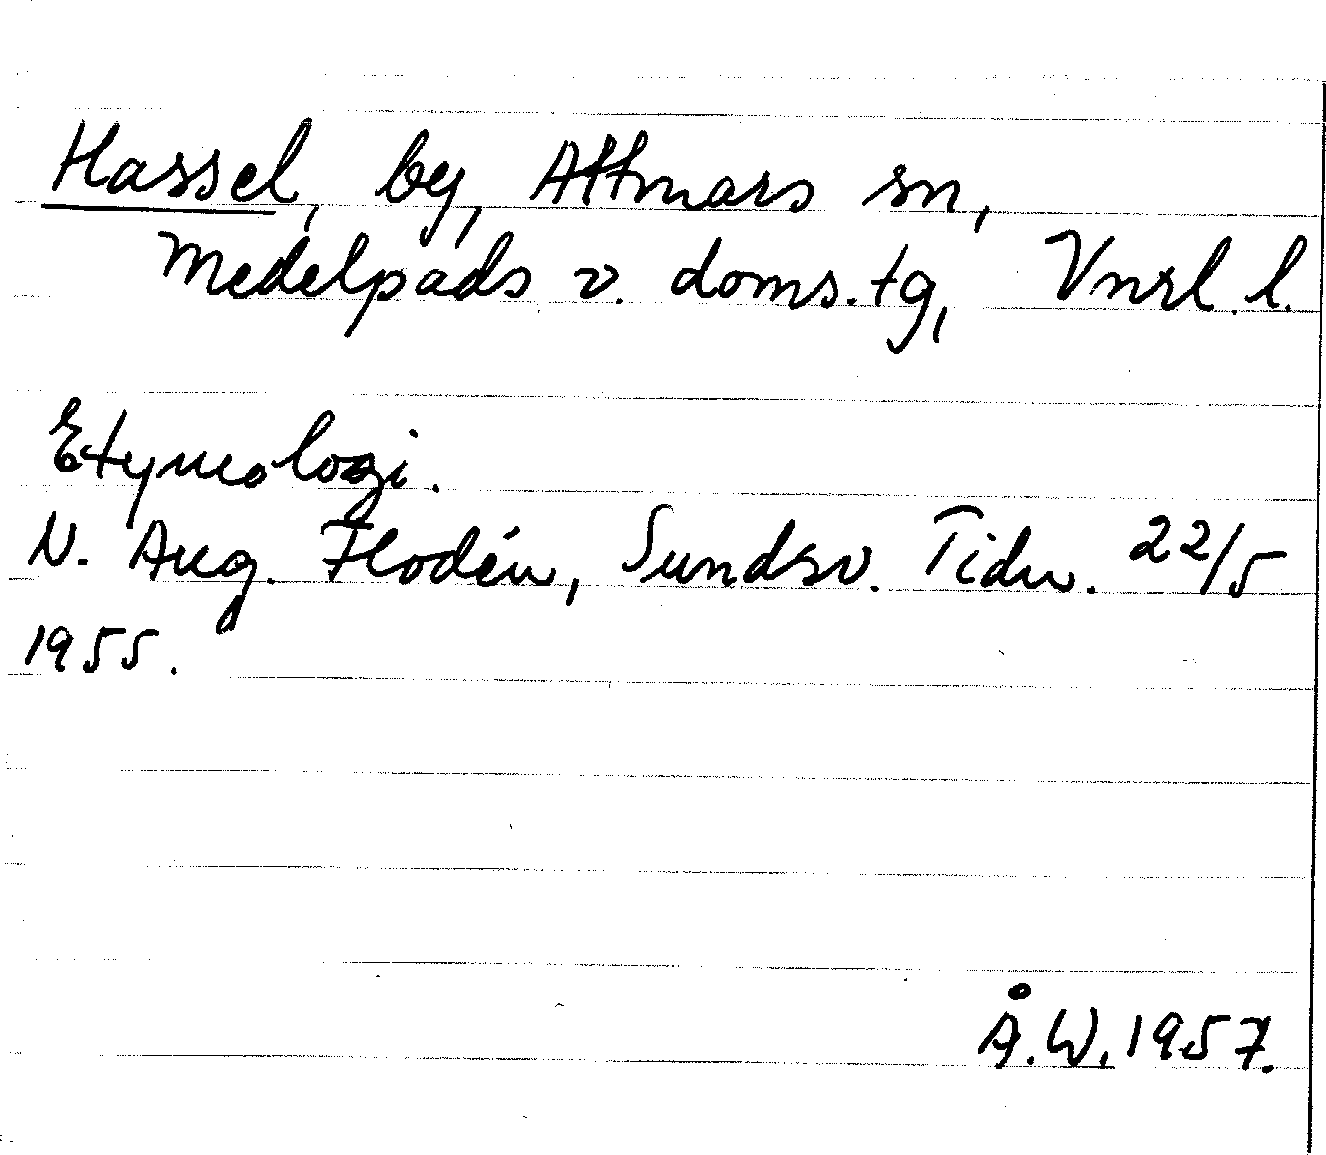 Hassel, by, Attmars sn,
Medelpads v. doms.tg, Vnrl. l.
Etymologi.
N. Aug. Flodén, Sundsv. Tidn. 22/5
1955.
Å.W. 1957.